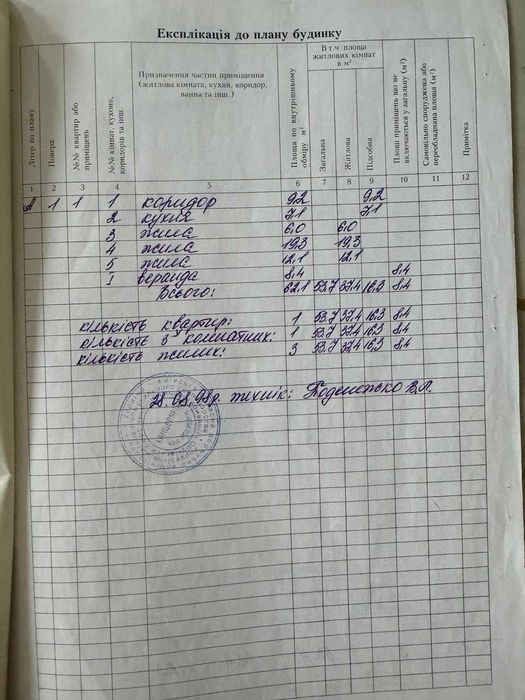 Експлікація до плану будинку
Літер по плану
Поверх
№№ квартир або приміщень
№№ кімнат, кухонь, коридорів та інш.
Призначення частин приміщення
(житлова кімната, кухня, коридор,
ванна та інш.)
Площа по внутрішньому обміру м²
В т.ч. площа
житлових кімнат
в м²
Загальна
Житлова
Підсобна
Площі приміщень що не включаються у загальну (м²)
Самовільно споруджена або переобладнана площа (м²)
Примітка
1 2 3 4 5 6 7 8 9 10 11 12
А 1 1 1 коридор 9,2 9,2
2 кухня 7,1 7,1
3 жила 6,0 6,0
4 жила 19,3 19,3
5 жила 12,1 12,1
I веранда 8,4 8,4
Всього: 62,1 53,7 37,4 16,3 8,4
кількість квартир: 1 53,7 37,4 16,3 8,4
кількість 3 кімнатних: 1 53,7 37,4 16,3 8,4
кількість жилих: 3 53,7 37,4 16,3 8,4
28.08.98р. технік: